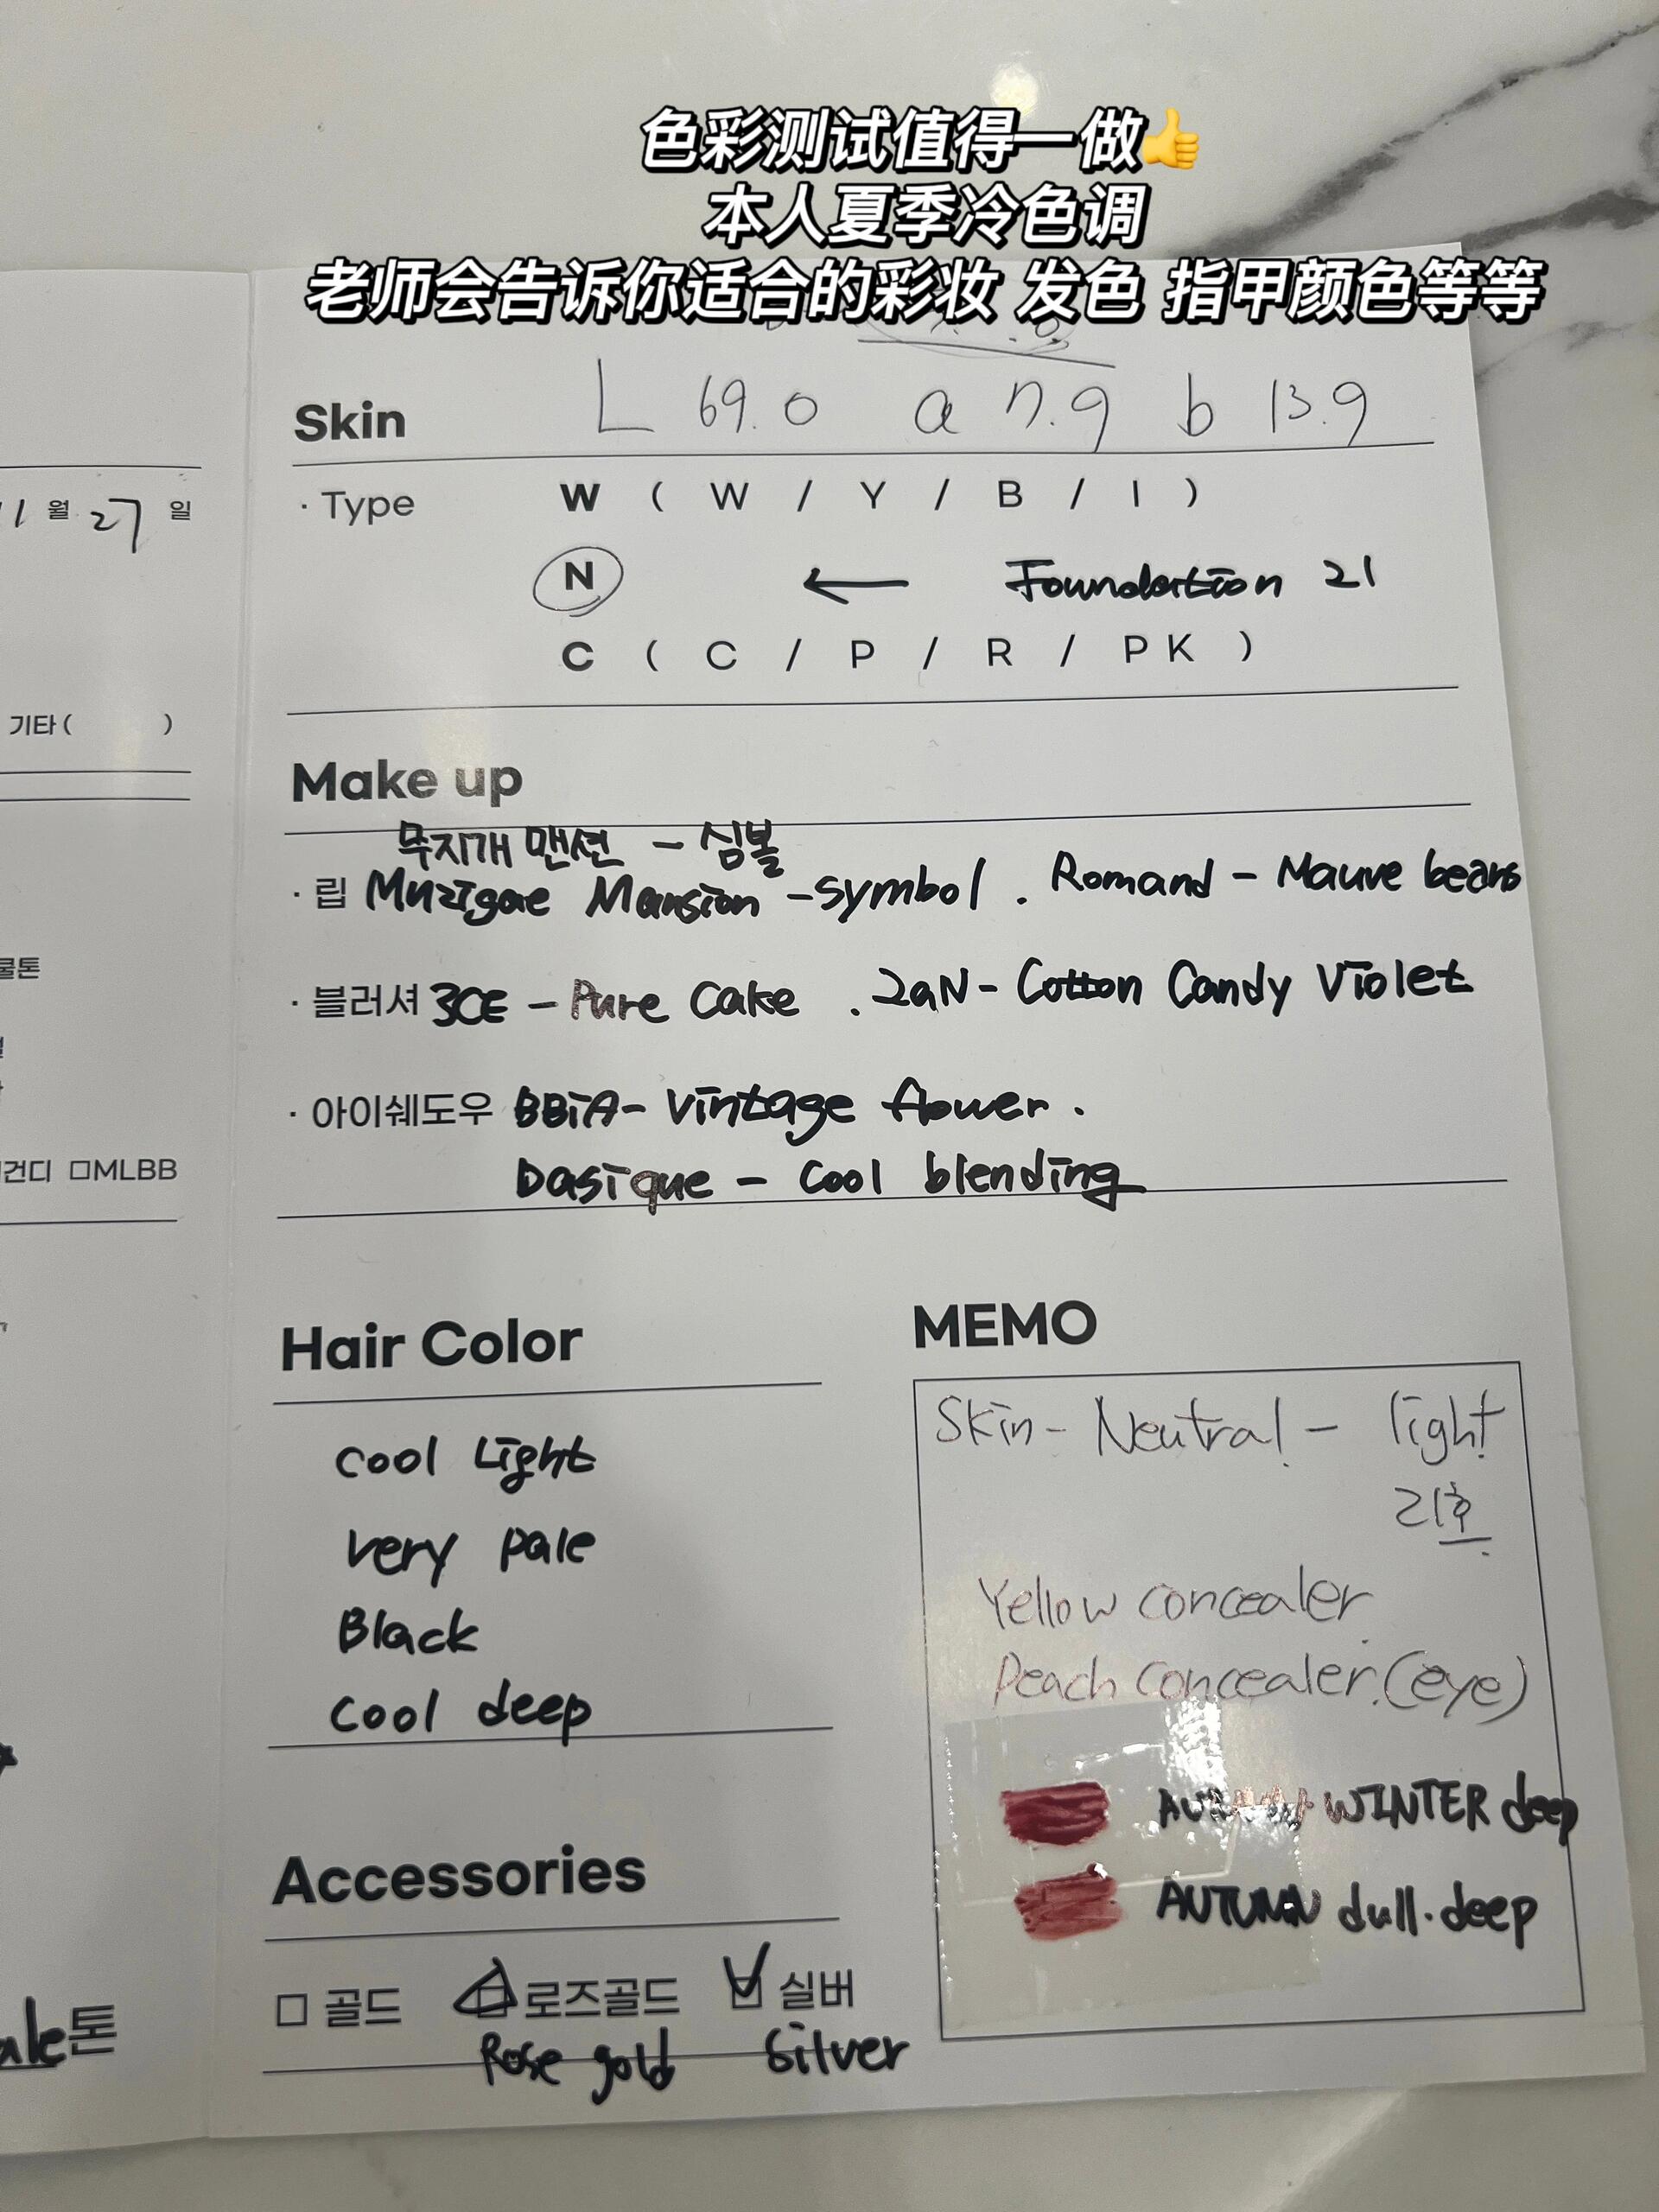 色彩测试值得一做👍
本人夏季冷色调
老师会告诉你适合的彩妆 发色 指甲颜色等等
Skin L 69.0 a 7.9 b 13.9
11 월 27 일
· Type W ( W / Y / B / I )
N ← Foundation 21
C ( C / P / R / PK )
기타 ( )
Make up
무지개 맨션 - 심볼
· 립 Muzigae Mansion - symbol . Romand - Mauve beans
쿨톤
· 블러셔 3CE - Pure Cake . 2aN - Cotton Candy Violet
· 아이쉐도우 BBiA - Vintage flower .
Dasique - Cool blending
건디 □MLBB
Hair Color
Cool Light
very pale
Black
Cool deep
MEMO
Skin - Neutral - light
21호
Yellow concealer
Peach concealer. (eye)
WINTER deep
AUTUMN dull. deep
Accessories
□ 골드 로즈골드 실버
Rose gold Silver
ale톤